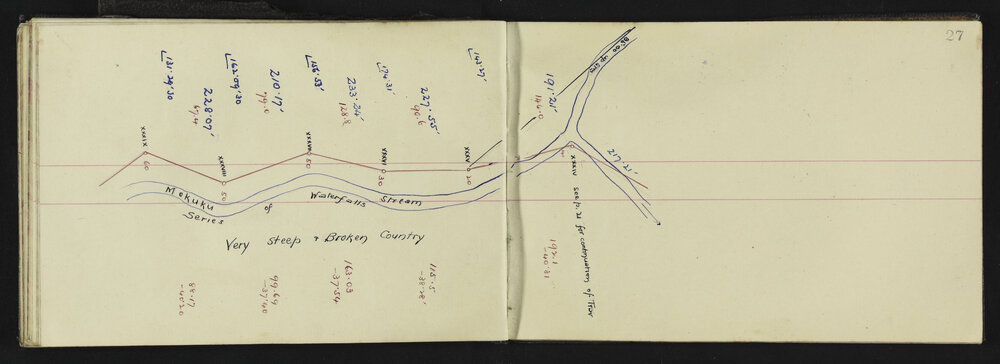 27
∟131·29'30
228·07'
67·4
∟162·09'30
210·17'
79·0
∟156·53'
233·24'
128·8
∟174·31'
227·55'
90·6
∟143·27'
191·21'
144·0
217·21'
XXXIX
60
XXXVIII
50
XXXVII
50
XXXVI
30
XXXV
20
XXXIV see p. 21 for continuation of Trav
Mokuku Stream
Series of Waterfalls
Very steep & Broken Country
88·17
-40·20
99·69
-37·40
163·03
-37·54
115·5
-38·28'
192·1
-40·31